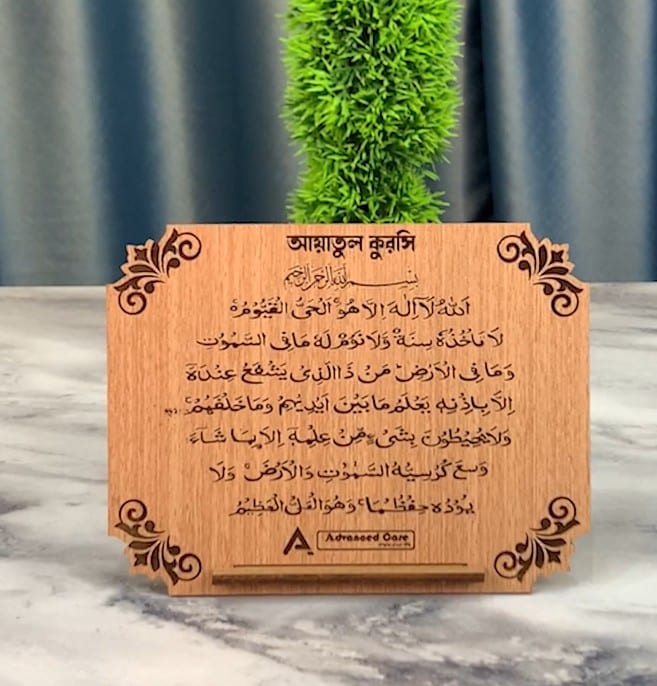 আয়াতুল কুরসি
بسم الله الرحمن الرحيم
اَللّٰهُ لَاۤ اِلٰهَ اِلَّا هُوَ ۚ اَلْحَیُّ الْقَیُّوْمُ ۚ۬
لَا تَاْخُذُهٗ سِنَةٌ وَّلَا نَوْمٌ ؕ لَهٗ مَا فِی السَّمٰوٰتِ
وَمَا فِی الْاَرْضِ ؕ مَنْ ذَا الَّذِیْ یَشْفَعُ عِنْدَهٗۤ
اِلَّا بِاِذْنِهٖ ؕ یَعْلَمُ مَا بَیْنَ اَیْدِیْهِمْ وَمَا خَلْفَهُمْ ۚ
وَلَا یُحِیْطُوْنَ بِشَیْءٍ مِّنْ عِلْمِهٖۤ اِلَّا بِمَا شَآءَ ۚ
وَسِعَ كُرْسِیُّهُ السَّمٰوٰتِ وَالْاَرْضَ ۚ وَلَا
یَـُٔوْدُهٗ حِفْظُهُمَا ۚ وَهُوَ الْعَلِیُّ الْعَظِیْمُ
Advanced Care